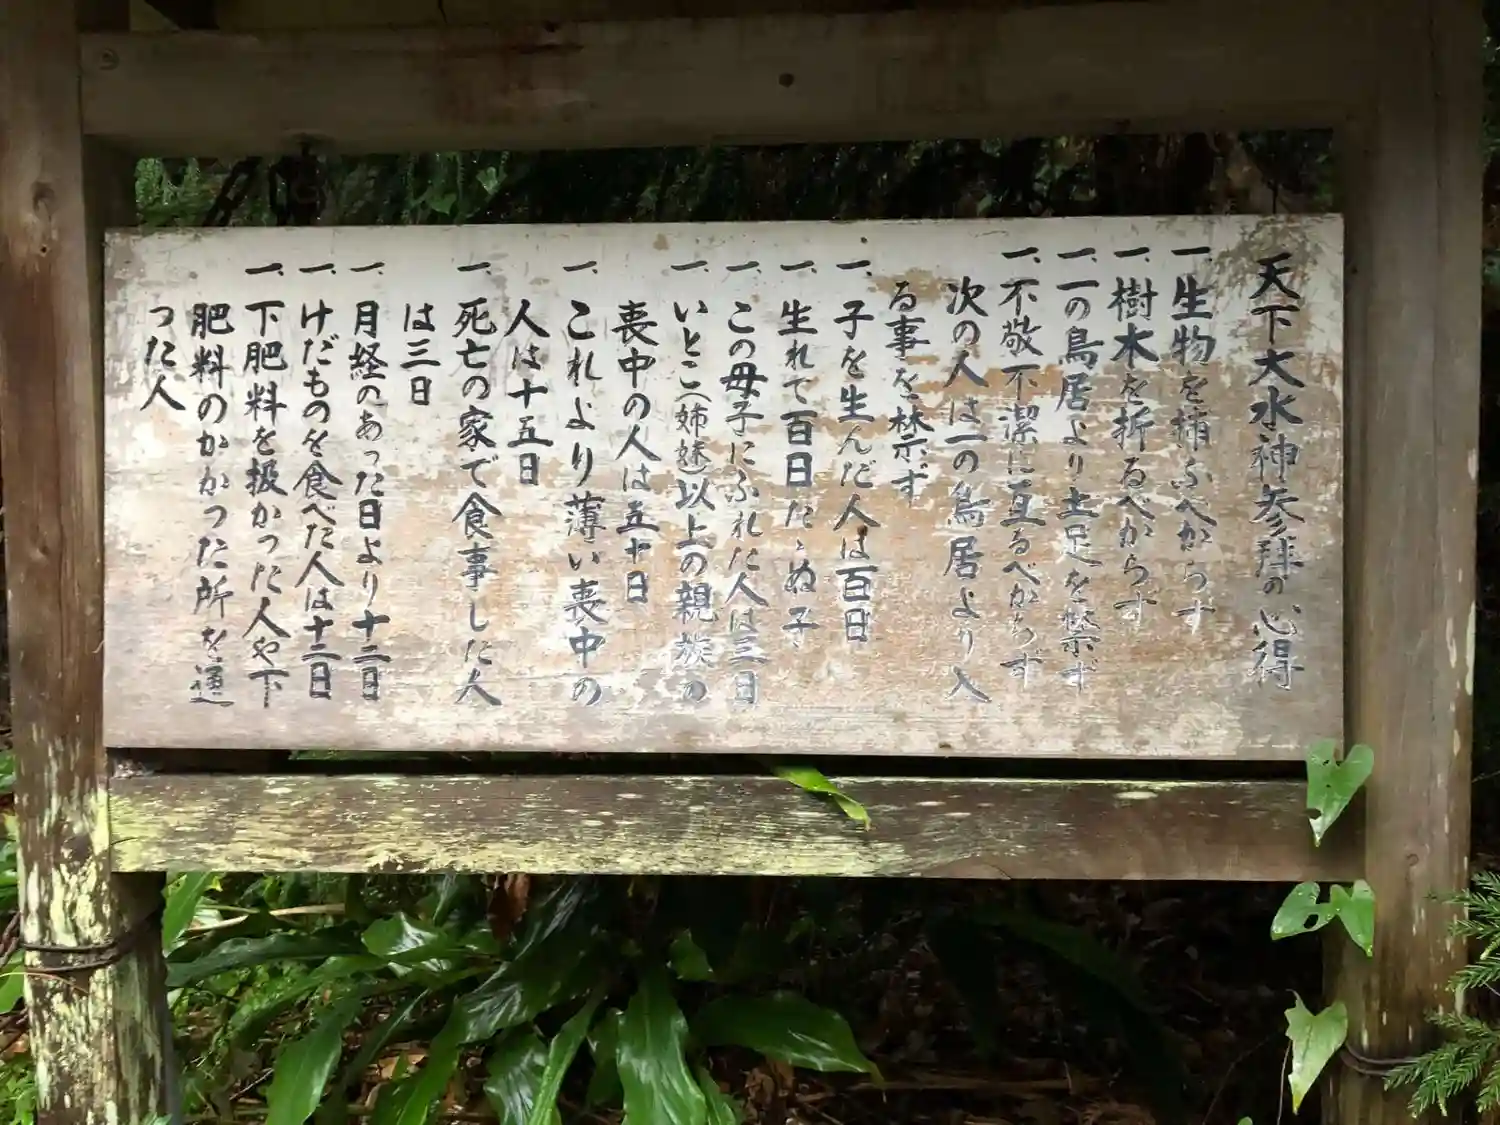 天下大水神参拝の心得
一、生物を捕ふべからす
一、樹木を折るべからす
一、二の鳥居より土足を禁ず
一、不敬不潔に亙るべからず
次の人は一の鳥居より入
る事を禁ず
一、子を生んだ人は百日
一、生れて百日たゝぬ子
一、この母子にふれた人は三日
一、いとこ(姉妹)以上の親族の
喪中の人は五十日
一、これより薄い喪中の
人は十五日
一、死亡の家で食事した人
は三日
一、月経のあった日より十二日
一、けだものを食べた人は十二日
一、下肥料を扱かった人や下
肥料のかかった所を運
った人